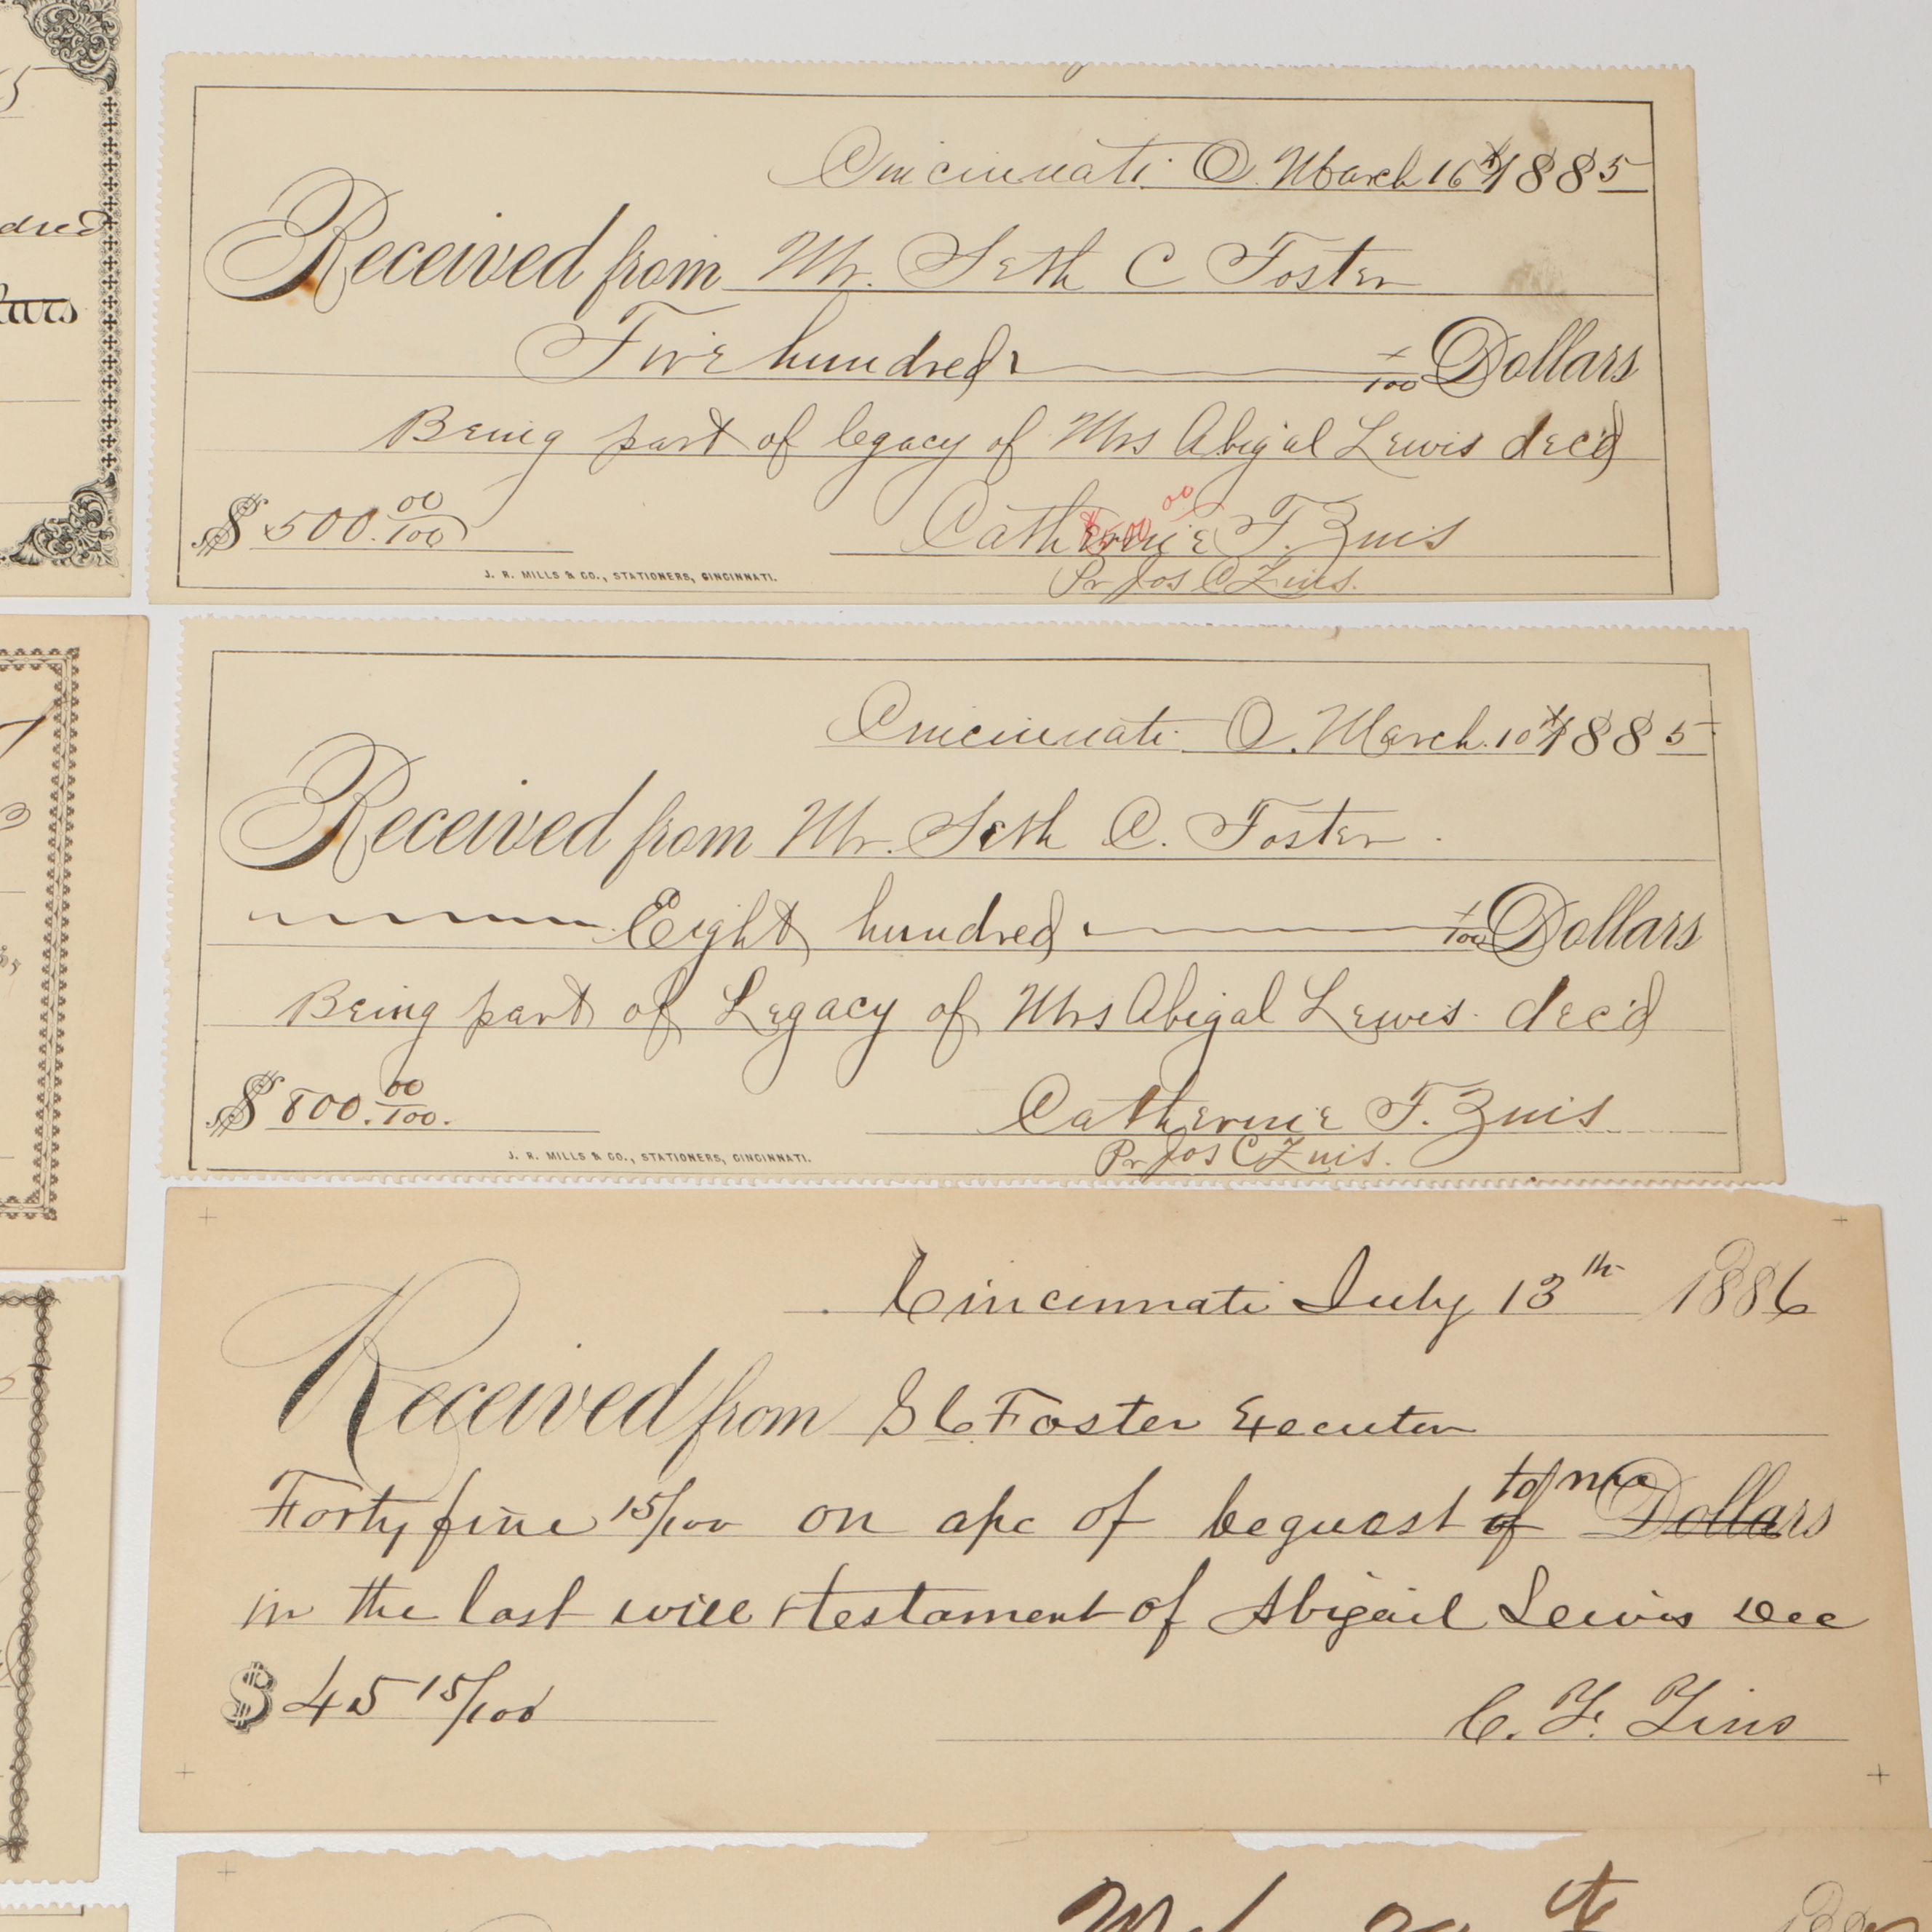 Cincinnati. O. March 16th 1885
Received from Mr. Seth C Foster
Five hundred /100 Dollars
Being part of legacy of Mrs Abigal Lewis dec'd
$ 500.00/100
$500.00
Catherine F. Zins
Pr Jos C Zins.
J. R. MILLS & CO., STATIONERS, CINCINNATI.
Cincinnati. O. March. 10th 1885
Received from Mr. Seth C. Foster.
Eight hundred /100 Dollars
Being part of Legacy of Mrs Abigal Lewis. dec'd
$ 800.00/100.
Catherine F. Zins.
Pr Jos C Zins.
J. R. MILLS & CO., STATIONERS, CINCINNATI.
Cincinnati July 13th 1886
Received from S C Foster Executor
to me
Forty five 15/100 on a/c of bequest of Dollars
in the last will & testament of Abigail Lewis Dec
$ 45 15/100
C. F. Zins